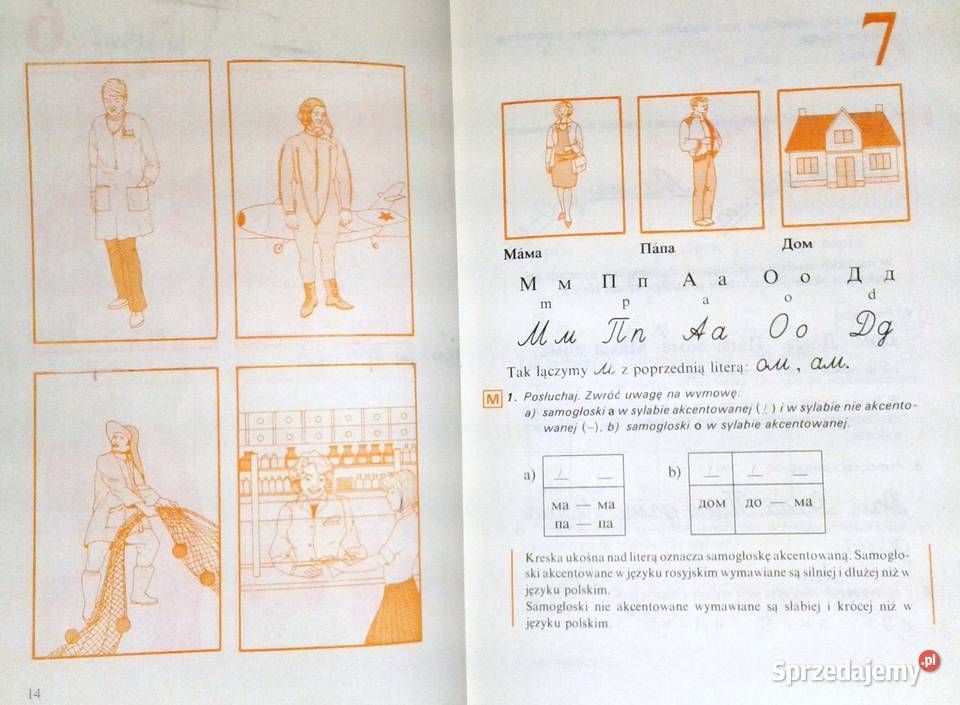 14
7
Ма́ма
Па́па
Дом
М м П п А а О о Д д
m p a o d
М м П п А а О о Д д
Tak łączymy м z poprzednią literą: ом , ам.
M 1. Posłuchaj. Zwróć uwagę na wymowę:
a) samogłoski a w sylabie akcentowanej (⊥) i w sylabie nie akcento-
wanej (–), b) samogłoski o w sylabie akcentowanej.
a)
ма — ма
па — па
b)
дом до — ма
Kreska ukośna nad literą oznacza samogłoskę akcentowaną. Samogło-
ski akcentowane w języku rosyjskim wymawiane są silniej i dłużej niż w
języku polskim.
Samogłoski nie akcentowane wymawiane są słabiej i krócej niż w
języku polskim.
Sprzedajemy.pl